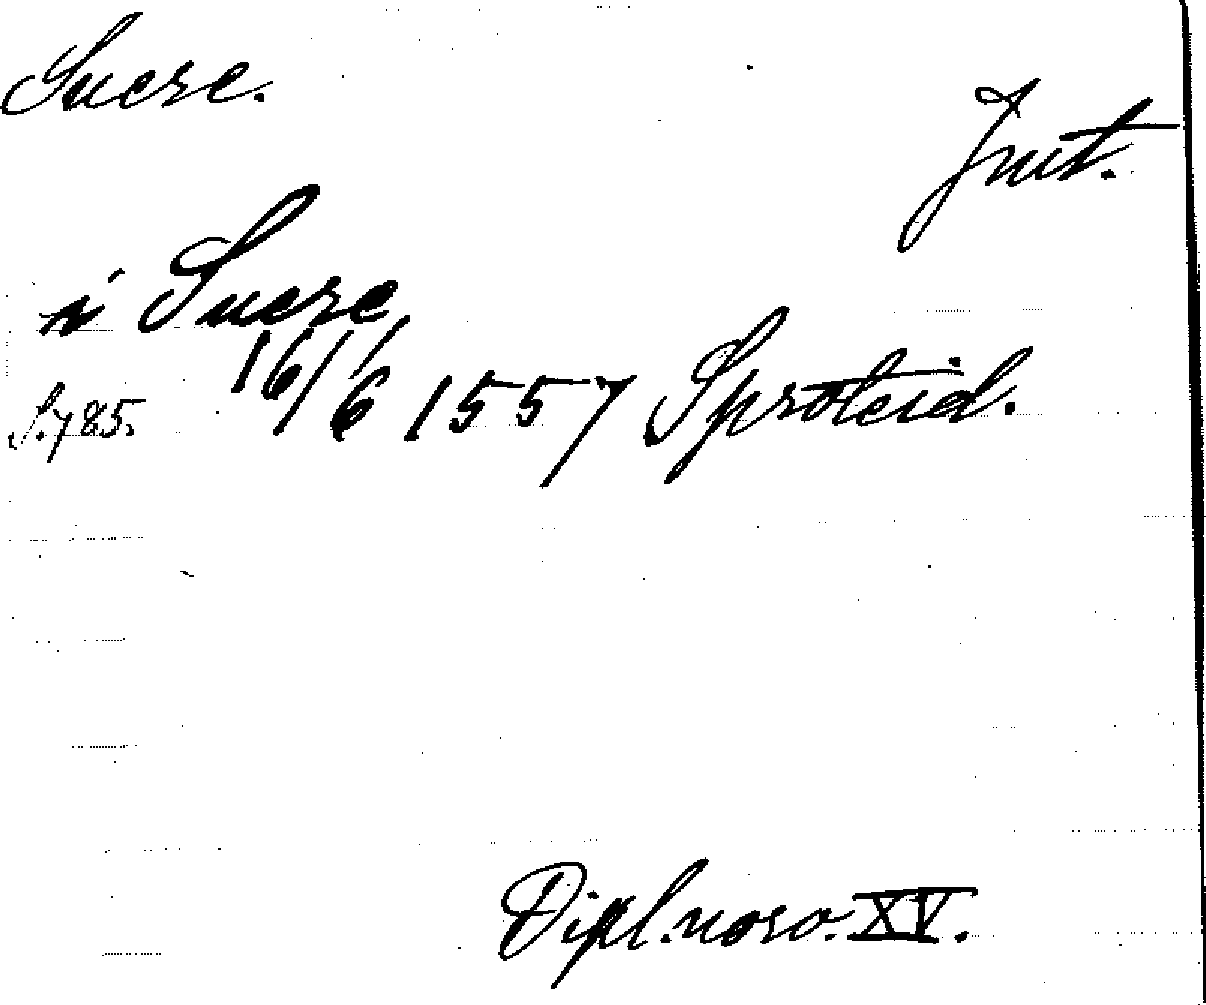 Suere.
Jnst.
i Suere
S. 785. 16/6 1557 Sproteid.
Dipl. norv. XV.